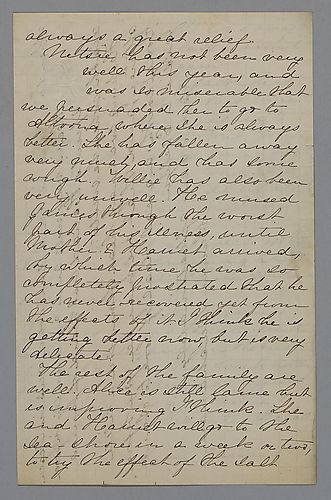 always a great relief.
has not been very
well this year, and
was so miserable that
we persuaded her to go to
Altoona where she is always
better. She has fallen away
very much, and has some
cough. Willie has also been
very unwell. He nursed
James through the worst
part of his illness, until
Mother & Harriet arrived,
by which time he was so
completely prostrated that he
has never recovered yet from
the effects of it. I think he is
getting better now, but is very
delicate.
The rest of the family are
well. Alice is still lame but
is improving I think. She
and Harriet will go to the
sea-shore in a week or two,
to try the effect of the salt